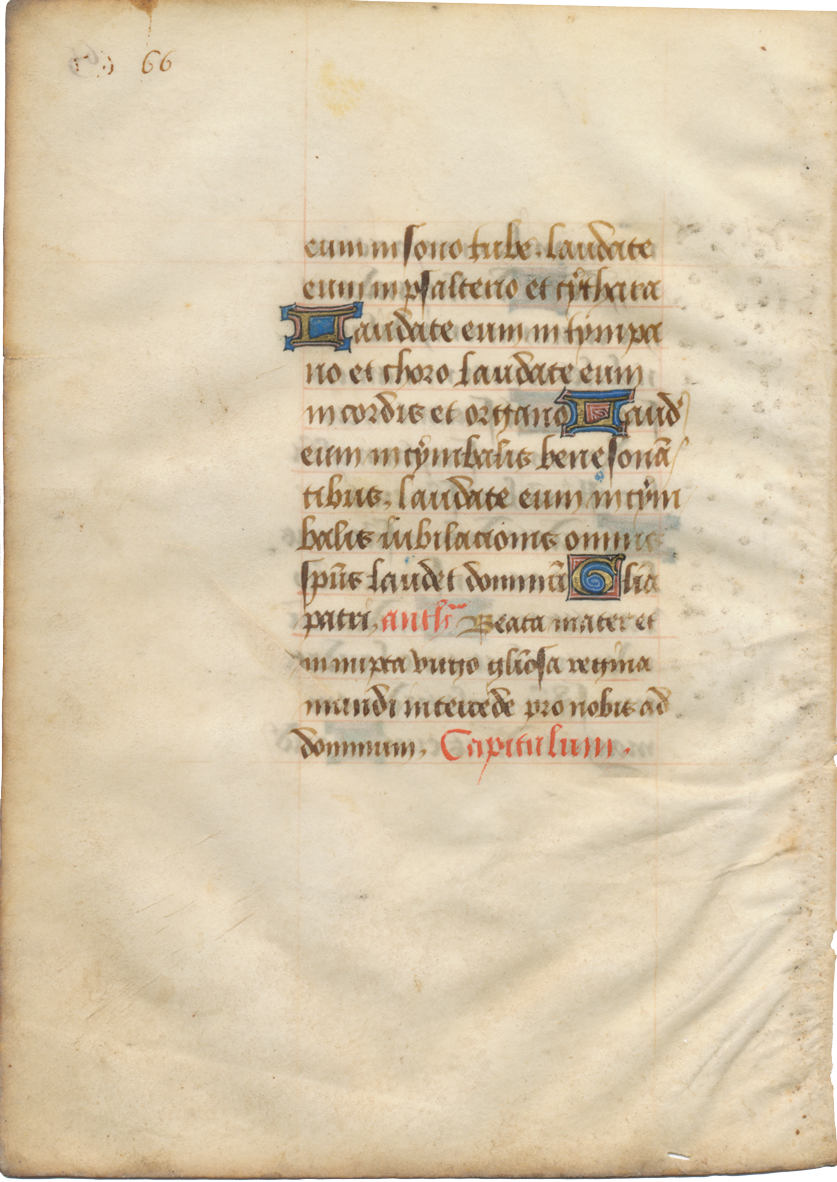 66
eum in sono tube. laudate
eum in psalterio et cythara
Laudate eum in tympa
no et choro laudate eum
in cordis et organo Laud
eum in cymbalis bene sonã
tibus. laudate eum in cym
balis iubilacionis omnis
spũs laudet dominũ Glĩa
patri. Beata mater et
innupta virgo gliosa regina
mundi intercede pro nobis ad
dominum. Capitulum.